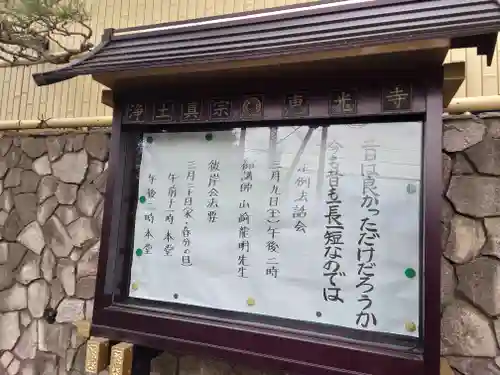 浄土真宗 恵光寺
昔は良かっただけだろうか
今も昔も一長一短なのでは
定例法話会
三月九日(土)午後二時
御講師 山崎龍明先生
彼岸会法要
三月二十日(水・春分の日)
午前十一時本堂
午後一時本堂